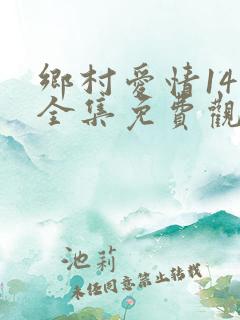 鄉村愛情14
全集免費觀
池莉
未经同意禁止转载